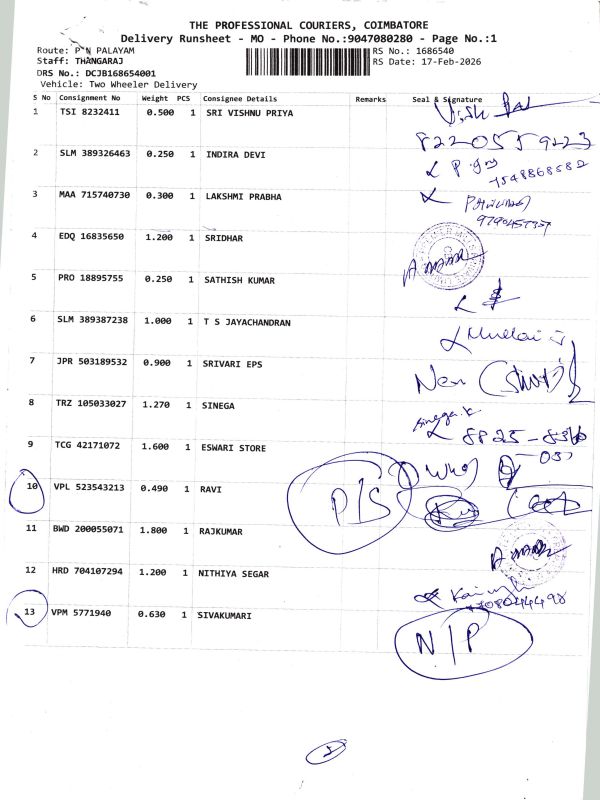 THE PROFESSIONAL COURIERS, COIMBATORE
Delivery Runsheet - MO - Phone No.:9047080280 - Page No.:1
Route: P N PALAYAM RS No.: 1686540
Staff: THANGARAJ RS Date: 17-Feb-2026
DRS No.: DCJB168654001
Vehicle: Two Wheeler Delivery
S No Consignment No Weight PCS Consignee Details Remarks Seal & Signature
1 TSI 8232411 0.500 1 SRI VISHNU PRIYA
8220559223
2 SLM 389326463 0.250 1 INDIRA DEVI
7548868582
3 MAA 715740730 0.300 1 LAKSHMI PRABHA
4 EDQ 16835650 1.200 1 SRIDHAR
5 PRO 18895755 0.250 1 SATHISH KUMAR
6 SLM 389387238 1.000 1 T S JAYACHANDRAN
Mullai
7 JPR 503189532 0.900 1 SRIVARI EPS
8 TRZ 105033027 1.270 1 SINEGA
sinega.k
9 TCG 42171072 1.600 1 ESWARI STORE
10 VPL 523543213 0.490 1 RAVI P/S
11 BWD 200055071 1.800 1 RAJKUMAR
12 HRD 704107294 1.200 1 NITHIYA SEGAR
13 VPM 5771940 0.630 1 SIVAKUMARI N/P
1